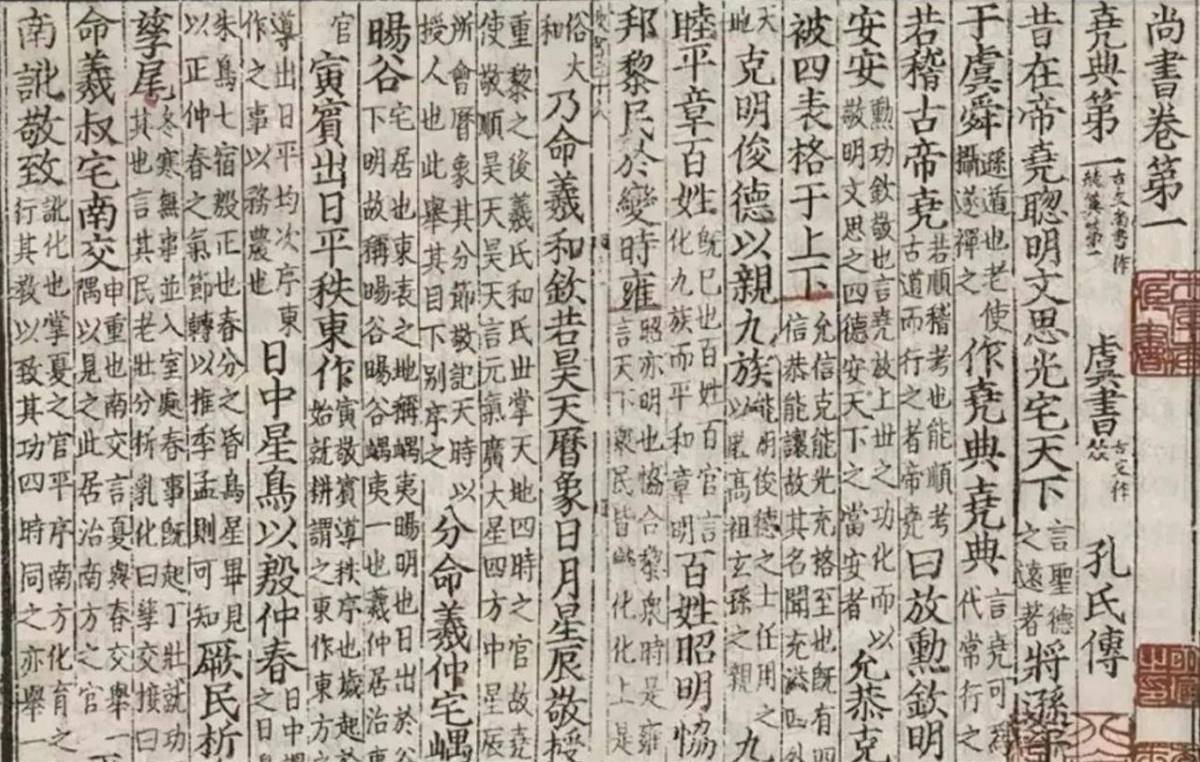 尚書卷第一
堯典第一 古文尚書作 虞書 孔氏傳
昔在帝堯聦明文思光宅天下 言聖德之遠著 將遜
于虞舜 遜遁也老使攝遂禪之 作堯典堯典 言堯可爲代常行之
若稽古帝堯 若順稽考也能順考古道而行之者帝堯 曰放勳欽明
安安 勳功欽敬也言堯放上世之功化而以敬明文思之四德安天下之當安者 允恭克
被四表格于上下 允信克能光充格至也既有四信恭能讓故其名聞充溢四外
天地 克明俊德以親九族 能明俊德之士任用之以睦高祖玄孫之親 九
睦平章百姓 既已也百姓百官言化九族而平和章明 百姓昭明恊
邦黎民於變時雍 昭亦明也恊合黎衆時是雍言天下衆民皆變化化上是
俗大和 乃命羲和欽若昊天曆象日月星辰敬授
重黎之後羲氏和氏世掌天地四時之官故堯使敬順昊天昊天言元氣廣大星四方中星辰
所會曆象其分節敬記天時以授人也此舉其目下別序之 分命羲仲宅嵎
暘谷 宅居也東表之地稱嵎夷暘明也日出於谷下明故稱暘谷暘谷嵎夷一也羲仲居治東
官 寅賓出日平秩東作 寅敬賓導秩序也歲起於始就耕謂之東作東方之
導出日平均次序東作之事以務農也 日中星鳥以殷仲春 日中之日
朱鳥七宿殷正也春分之昏鳥星畢見以正仲春之氣節轉以推季孟則可知 厥民析
孳尾 冬寒無事並入室處春事既起丁壯就功其也言其民老壯分析乳化曰孳交接曰
命羲叔宅南交 申重也南交言夏與春交舉一隅以見之此居治南方之官
南訛敬致 訛化也掌夏之官平序南方化育之行其敎以致其功四時同之亦舉一